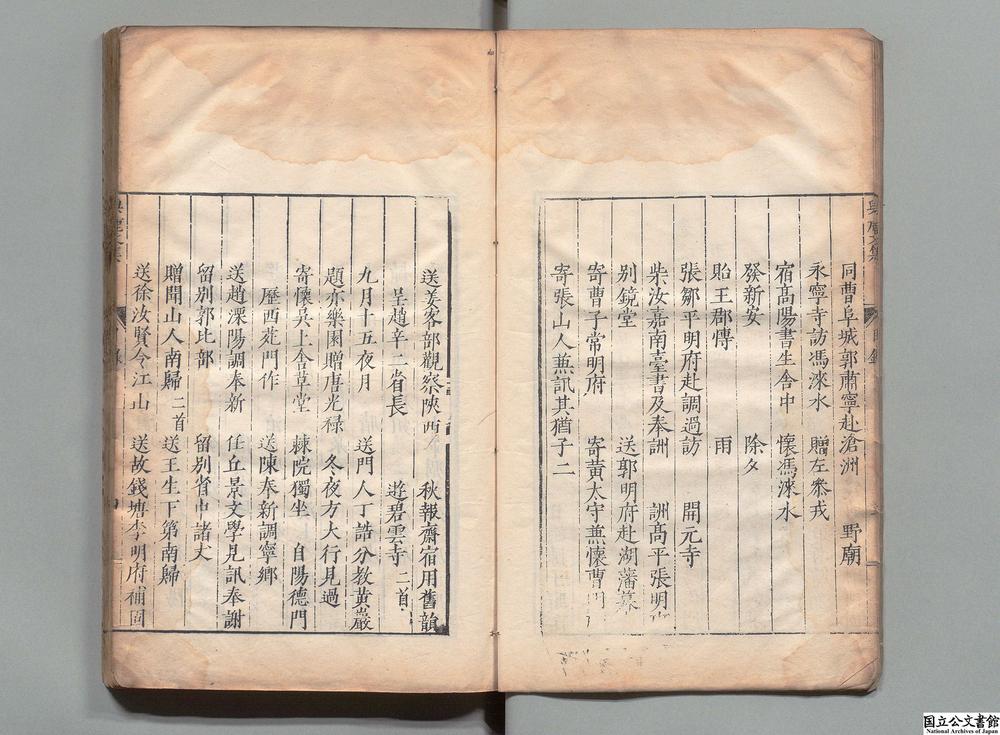 同曹阜城郭肅寧赴滄洲 野廟
永寧寺訪馮淶水 贈左叅戎
宿髙陽書生舎中 懷馮淶水
發新安 除夕
貽王郡傳 雨
張鄒平明府赴調過訪 開元寺
柴汝嘉南臺書及奉詶 詶髙平張明
别鏡堂 送郭明府赴湖藩幕
寄曹子常明府 寄黄太守蕪懷曹
寄張山人蕪訊其猶子二
送姜客部觀察陝西 秋報齋宿用舊韻
呈趙辛二省長 遊碧雲寺二首
九月十五夜月 送門人丁誥分教黄巖
題亦樂園贈唐光禄 冬夜方大行見過
寄懷吳上舎草堂 棘院獨坐 自陽德門
歷西苑門作 送陳奉新調寧鄉
送趙溧陽調奉新 任丘景文學見訊奉謝
留别郭比部 留别省中諸丈
贈聞山人南歸二首 送王生下第南歸
送徐汝賢令江山 送故錢塘李明府補固
国立公文書館
National Archives of Japan